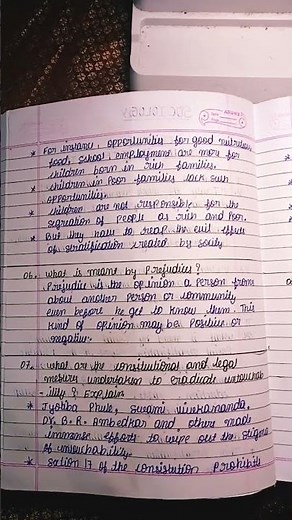 * For instance, opportunities for good nutritious
food, school employment are more for
children born in rich families.
* children in Poor families lack such
opportunities.
* children are not responsible for the
segreation of people as rich and Poor.
* But they have to reap the evil effects
of stratification created by soity
06. what is meant by Prejudies?
Prejudie is the opinion a person from
about another person or community
even before he get to know them. This
kind of opinion may be Positive or
negative.
07. what are the consitutional and legal
mesures undertaken to eraduate untouchab
-ility? Explain
* Jyotiba Phule, Swami vivekananda,
Dr. B. R. Ambedkar and others made
immense efforts to wipe out the stigma
of untouchability.
* Sation 17 of the consistution Prohibits